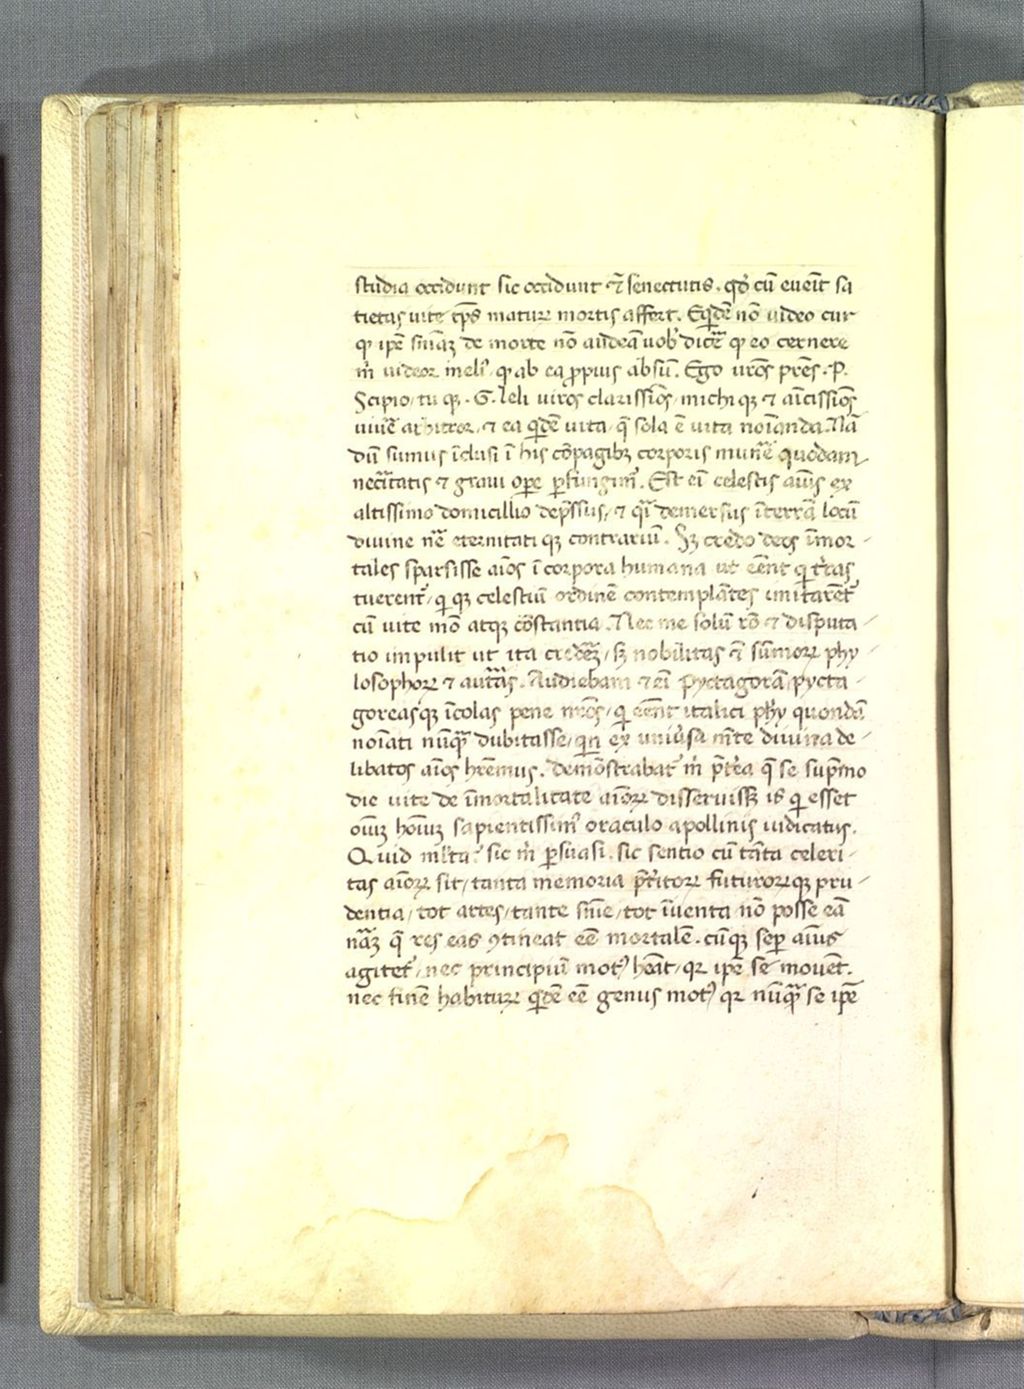 studia occidunt sic occidunt ⁊ senectutis. qđ cū evenit sa
tietas uite tp̄s maturū mortis affert. Eqđē nō uideo cur
qđ ip̄e sn̄tiāꝫ de morte nō audeā uob̾ dic̄e qđ eo cernere
m̄ uideor meli᾽ qđ ab ea ꝓpius absū. Ego vr̄os pr̄es. P.
Scipio / tu qꝫ. G. leli viros clarissīos / michi qꝫ ⁊ amīcissīos
uiue᷑ arbitror / ⁊ ea qđē uita / q̄ sola ē uita noīanda. Nā
dū sumus īclusi ī his cōpagibꝫ corporis mune᷑ quodam
nec̄itatis ⁊ graui ope ꝑfungim᷑. Est eī celestis aīus ex
altissimo domicillio dep̄ssus / ⁊ q̄i demersus ī terrā locū
divine nr̄e eternitati qꝫ contrariū. Sꝫ credo deos īmor -
tales sparsisse aīos ī corpora humana ut eēnt q̄ t̄ras
tuerent᷑ / q̄ qꝫ celestiū ordinē contemplātes imitarēt᷑
cū uite mō atqꝫ cōstantia. Nec me solū rō ⁊ disputa -
tio impulit ut ita crederē / sꝫ nobilitas ⁊ sūmoꝝ phy -
losophoꝝ ⁊ auct̄as. Audiebam ⁊ eī Pyctagorā pycta -
goreasqꝫ īcolas pene nr̄os / q̄ eēnt italici phỹ quondā
noīati nūq̄ dubitasse / qn̄ ex uniūsa mēte divina de -
libatos aīos hēremus. demōstrabat᷑ m̄ p̄t̄ea q̄ se sup̄mo
die uite de īmortalitate aīoꝝ disseruisꝫ is q̄ esset
oīuꝫ hoīuꝫ sapientissim᷑ oraculo apollinis iudicatus.
Quid ml̄ta? sic m̄ ꝑsuasi. sic sentio cū tāta celeri -
tas aīoꝝ sit / tanta memoria p̄t̄itoꝝ futuroꝝqꝫ pru -
dentia / tot artes / tante sciē / tot īventa nō posse eā
nāꝫ q̄ res eas ꝯtineat eē mortalē. cūqꝫ sep̄ aīus
agitet᷑ / nec principiū mot᾽ hēat / qꝛ ip̄e se movet.
nec finē habiturū qđē eē genus mot᾽ qꝛ nūq̄ se ip̄e